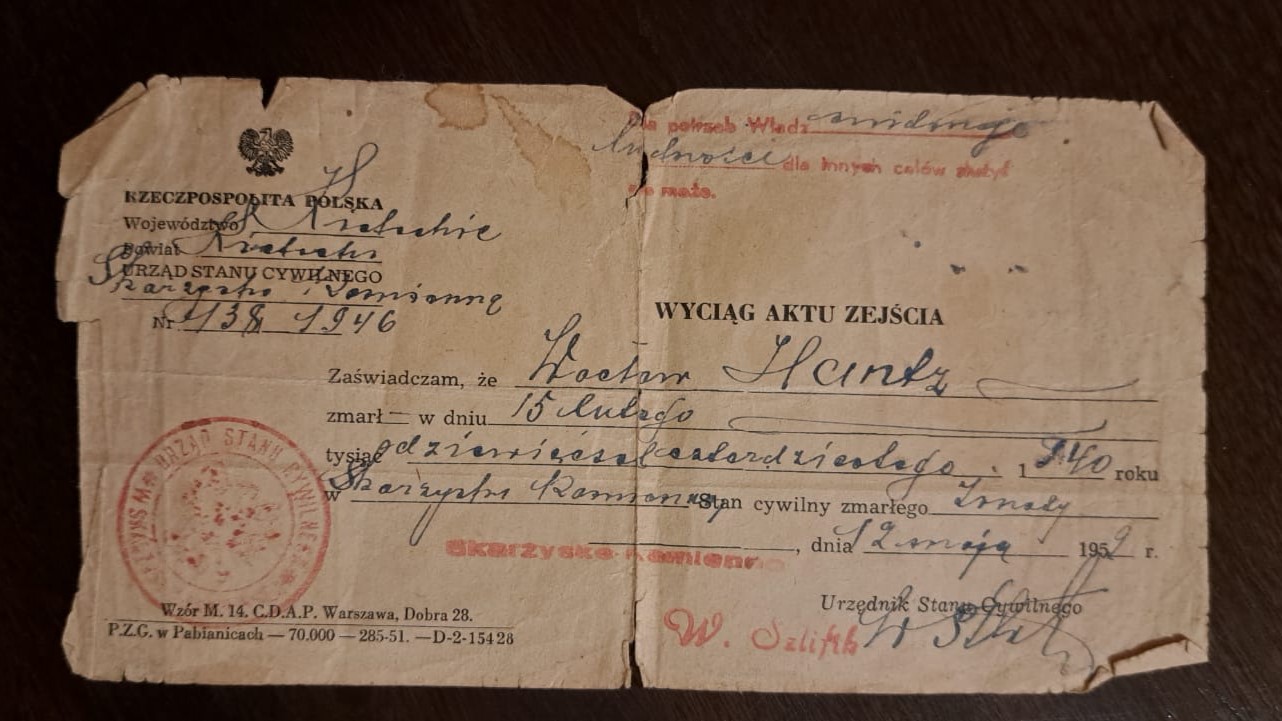 Dla potrzeb Władz
ludności dla innych celów służyć
nie może.
RZECZPOSPOLITA POLSKA
Województwo Kieleckie
Powiat Kielecki
URZĄD STANU CYWILNEGO
Skarżysko Kamienną
Nr. 138 1946
WYCIĄG AKTU ZEJŚCIA
Zaświadczam, że Wacław Hantz
zmarł — w dniu 15 lutego
tysiąc dziewięćset czterdziestego . 1940 roku
w Skarżysku Kamiennej Stan cywilny zmarłego żonaty
Skarżysko Kamienna, dnia 12 maja 1952 r.
URZĄD STANU CYWILNEGO
Urzędnik Stanu Cywilnego
W. Szlifik
Wzór M. 14. C.D.A.P. Warszawa, Dobra 28.
P.Z.G. w Pabianicach — 70.000 — 285-51. — D-2-15428